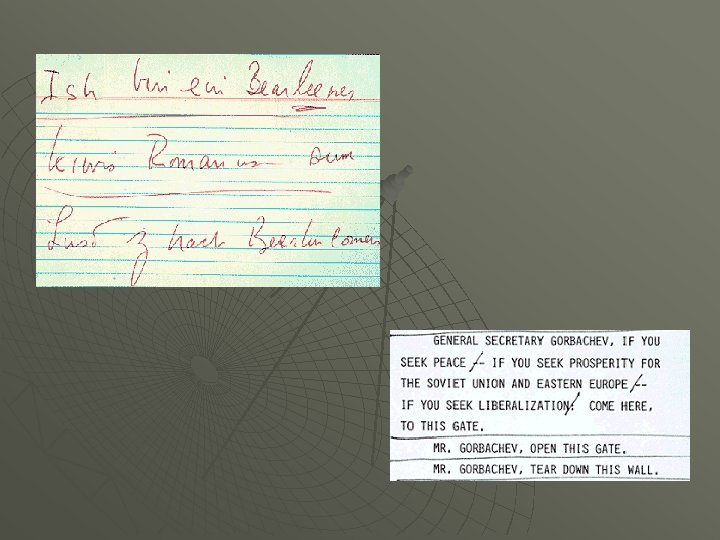 Ish bin ein Bearleener
kiwis Romanus sum
Lust z nach Bearlin comen
GENERAL SECRETARY GORBACHEV, IF YOU
SEEK PEACE -- IF YOU SEEK PROSPERITY FOR
THE SOVIET UNION AND EASTERN EUROPE --
IF YOU SEEK LIBERALIZATION: COME HERE,
TO THIS GATE.
MR. GORBACHEV, OPEN THIS GATE.
MR. GORBACHEV, TEAR DOWN THIS WALL.